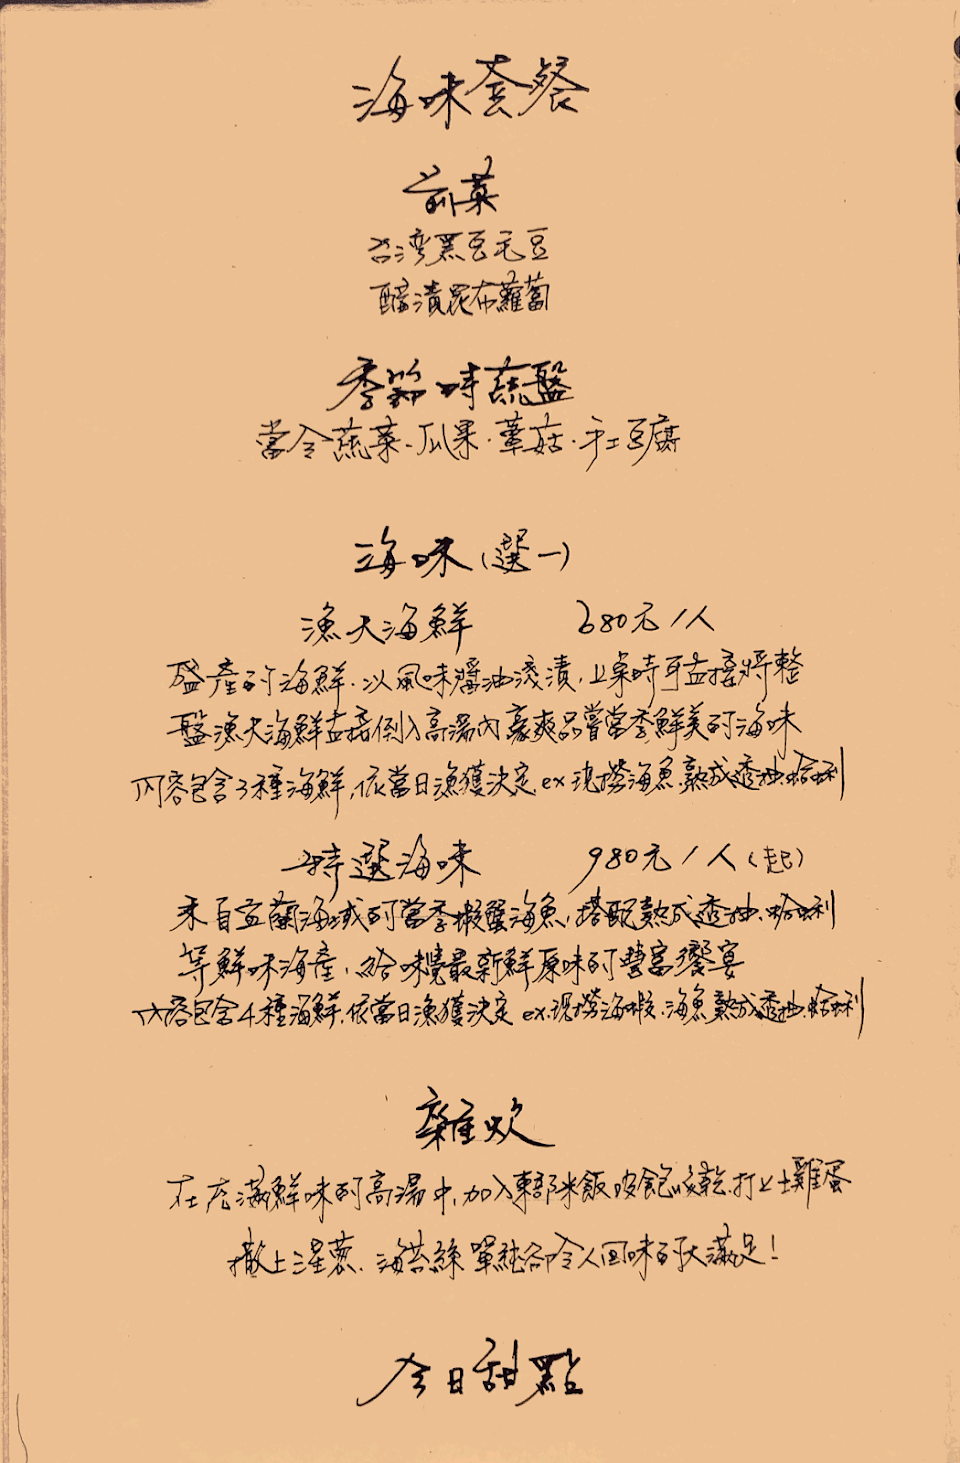 海味套餐
前菜
台湾黑豆毛豆
醋漬昆布蘿蔔
季節時蔬盤
當令蔬菜、瓜果、蕈菇、手工豆腐
海味(選一)
漁夫海鮮 680元/人
盛產的海鮮,以風味醬油淺漬,上桌時再直接將整
盤漁夫海鮮直接倒入高湯內豪爽品嘗當季鮮美的海味
內容包含3種海鮮,依當日漁獲決定 ex 現撈海魚、熟成透抽、蛤蜊
特選海味 980元/人(起)
來自宜蘭海域的當季蝦蟹海魚,搭配熟成透抽、蛤蜊
等鮮味海產,給味覺最新鮮原味的豐富饗宴
內容包含4種海鮮,依當日漁獲決定 ex.現撈海蝦、海魚、熟成透抽、蛤蜊
雜炊
在充滿鮮味的高湯中,加入東部米飯吸飽收乾,打上土雞蛋
撒上三星蔥、海苔絲 單純卻令人回味的大滿足!
今日甜點